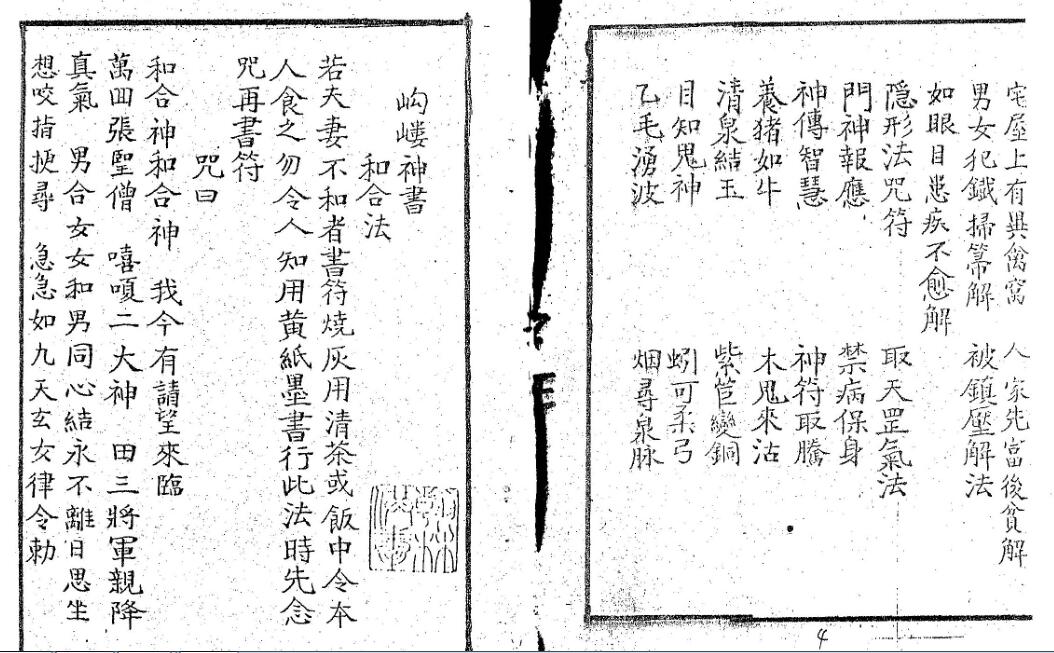 宅屋上有異禽窩 人家先富後貧解
男女犯鐵掃箒解 被鎮壓解法
如眼目患疾不愈解
隱形法咒符 取天罡氣法
門神報應 禁病保身
神傳智慧 神符取騰
養猪如牛 木鬼來沽
清泉結玉 紫笆變銅
目知鬼神 蚓可柔弓
乙毛湧波 烟尋泉脉
4
岣嶁神書
和合法
若夫妻不和者書符燒灰用清茶或飯中令本
人食之勿令人知用黄紙墨書行此法時先念
咒再書符
咒曰
和合神和合神 我今有請望來臨
萬囬張聖僧 嘻嗄二大神 田三將軍親降
真氣 男合女女和男同心結永不離日思坐
想咬指挭尋 急急如九天玄女律令勅